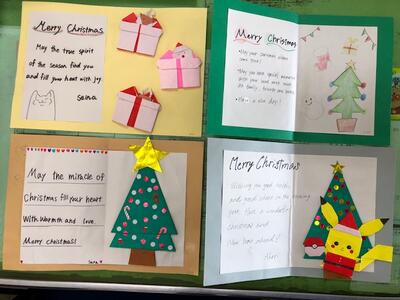 Merry Christmas
May the true spirit
of the season find you
and fill your heart with joy
Seina
Merry Christmas
May your Christmas wishes
come true!
May you have special memories
with your loved ones such
as family, friends and
Have a nice day!
May the miracle of
Christmas fill your heart
With warmth and love.
Merry christmas!
Sara
Merry Christmas
Wishing you good health,
and good cheer in the coming
year. Have a wonderful
christmas and
New Year ahead!!